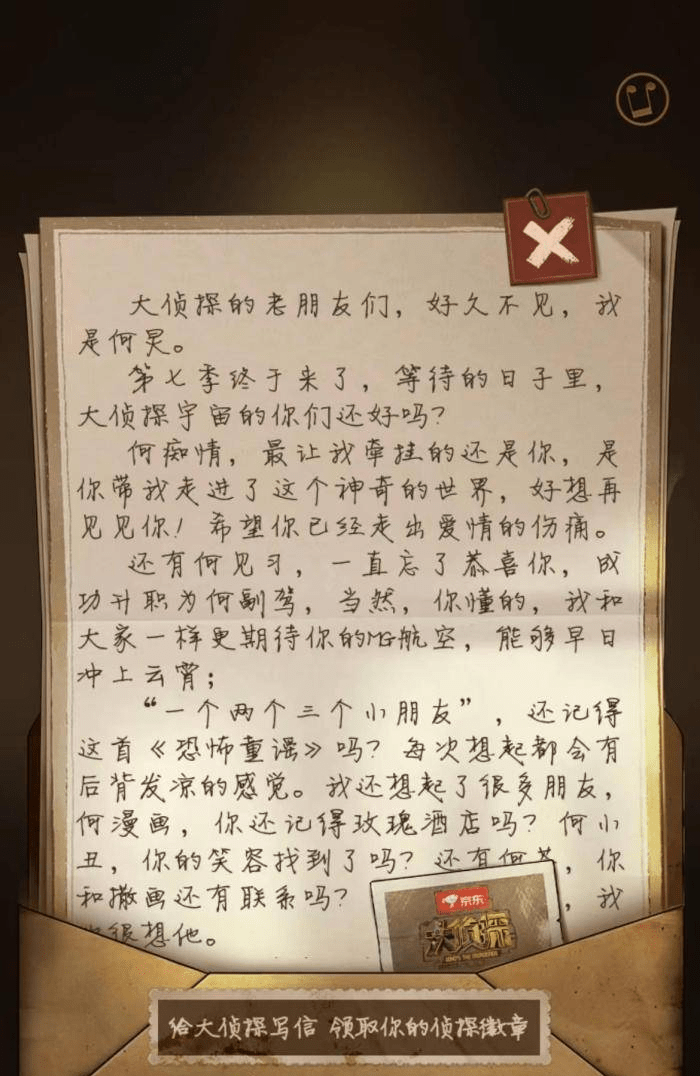 大侦探的老朋友们，好久不见，我
是何炅。
第七季终于来了，等待的日子里，
大侦探宇宙的你们还好吗？
何痴情，最让我牵挂的还是你，是
你带我走进了这个神奇的世界，好想再
见见你！希望你已经走出爱情的伤痛。
还有何见习，一直忘了恭喜你，成
功升职为何副驾，当然，你懂的，我和
大家一样更期待你的MG航空，能够早日
冲上云霄；
“一个两个三个小朋友”，还记得
这首《恐怖童谣》吗？每次想起都会有
后背发凉的感觉。我还想起了很多朋友，
何漫画，你还记得玫瑰酒店吗？何小
丑，你的笑容找到了吗？还有何，你
和撒画还有联系吗？，我
很想他。
京东
大侦探
给大侦探写信 领取你的侦探徽章